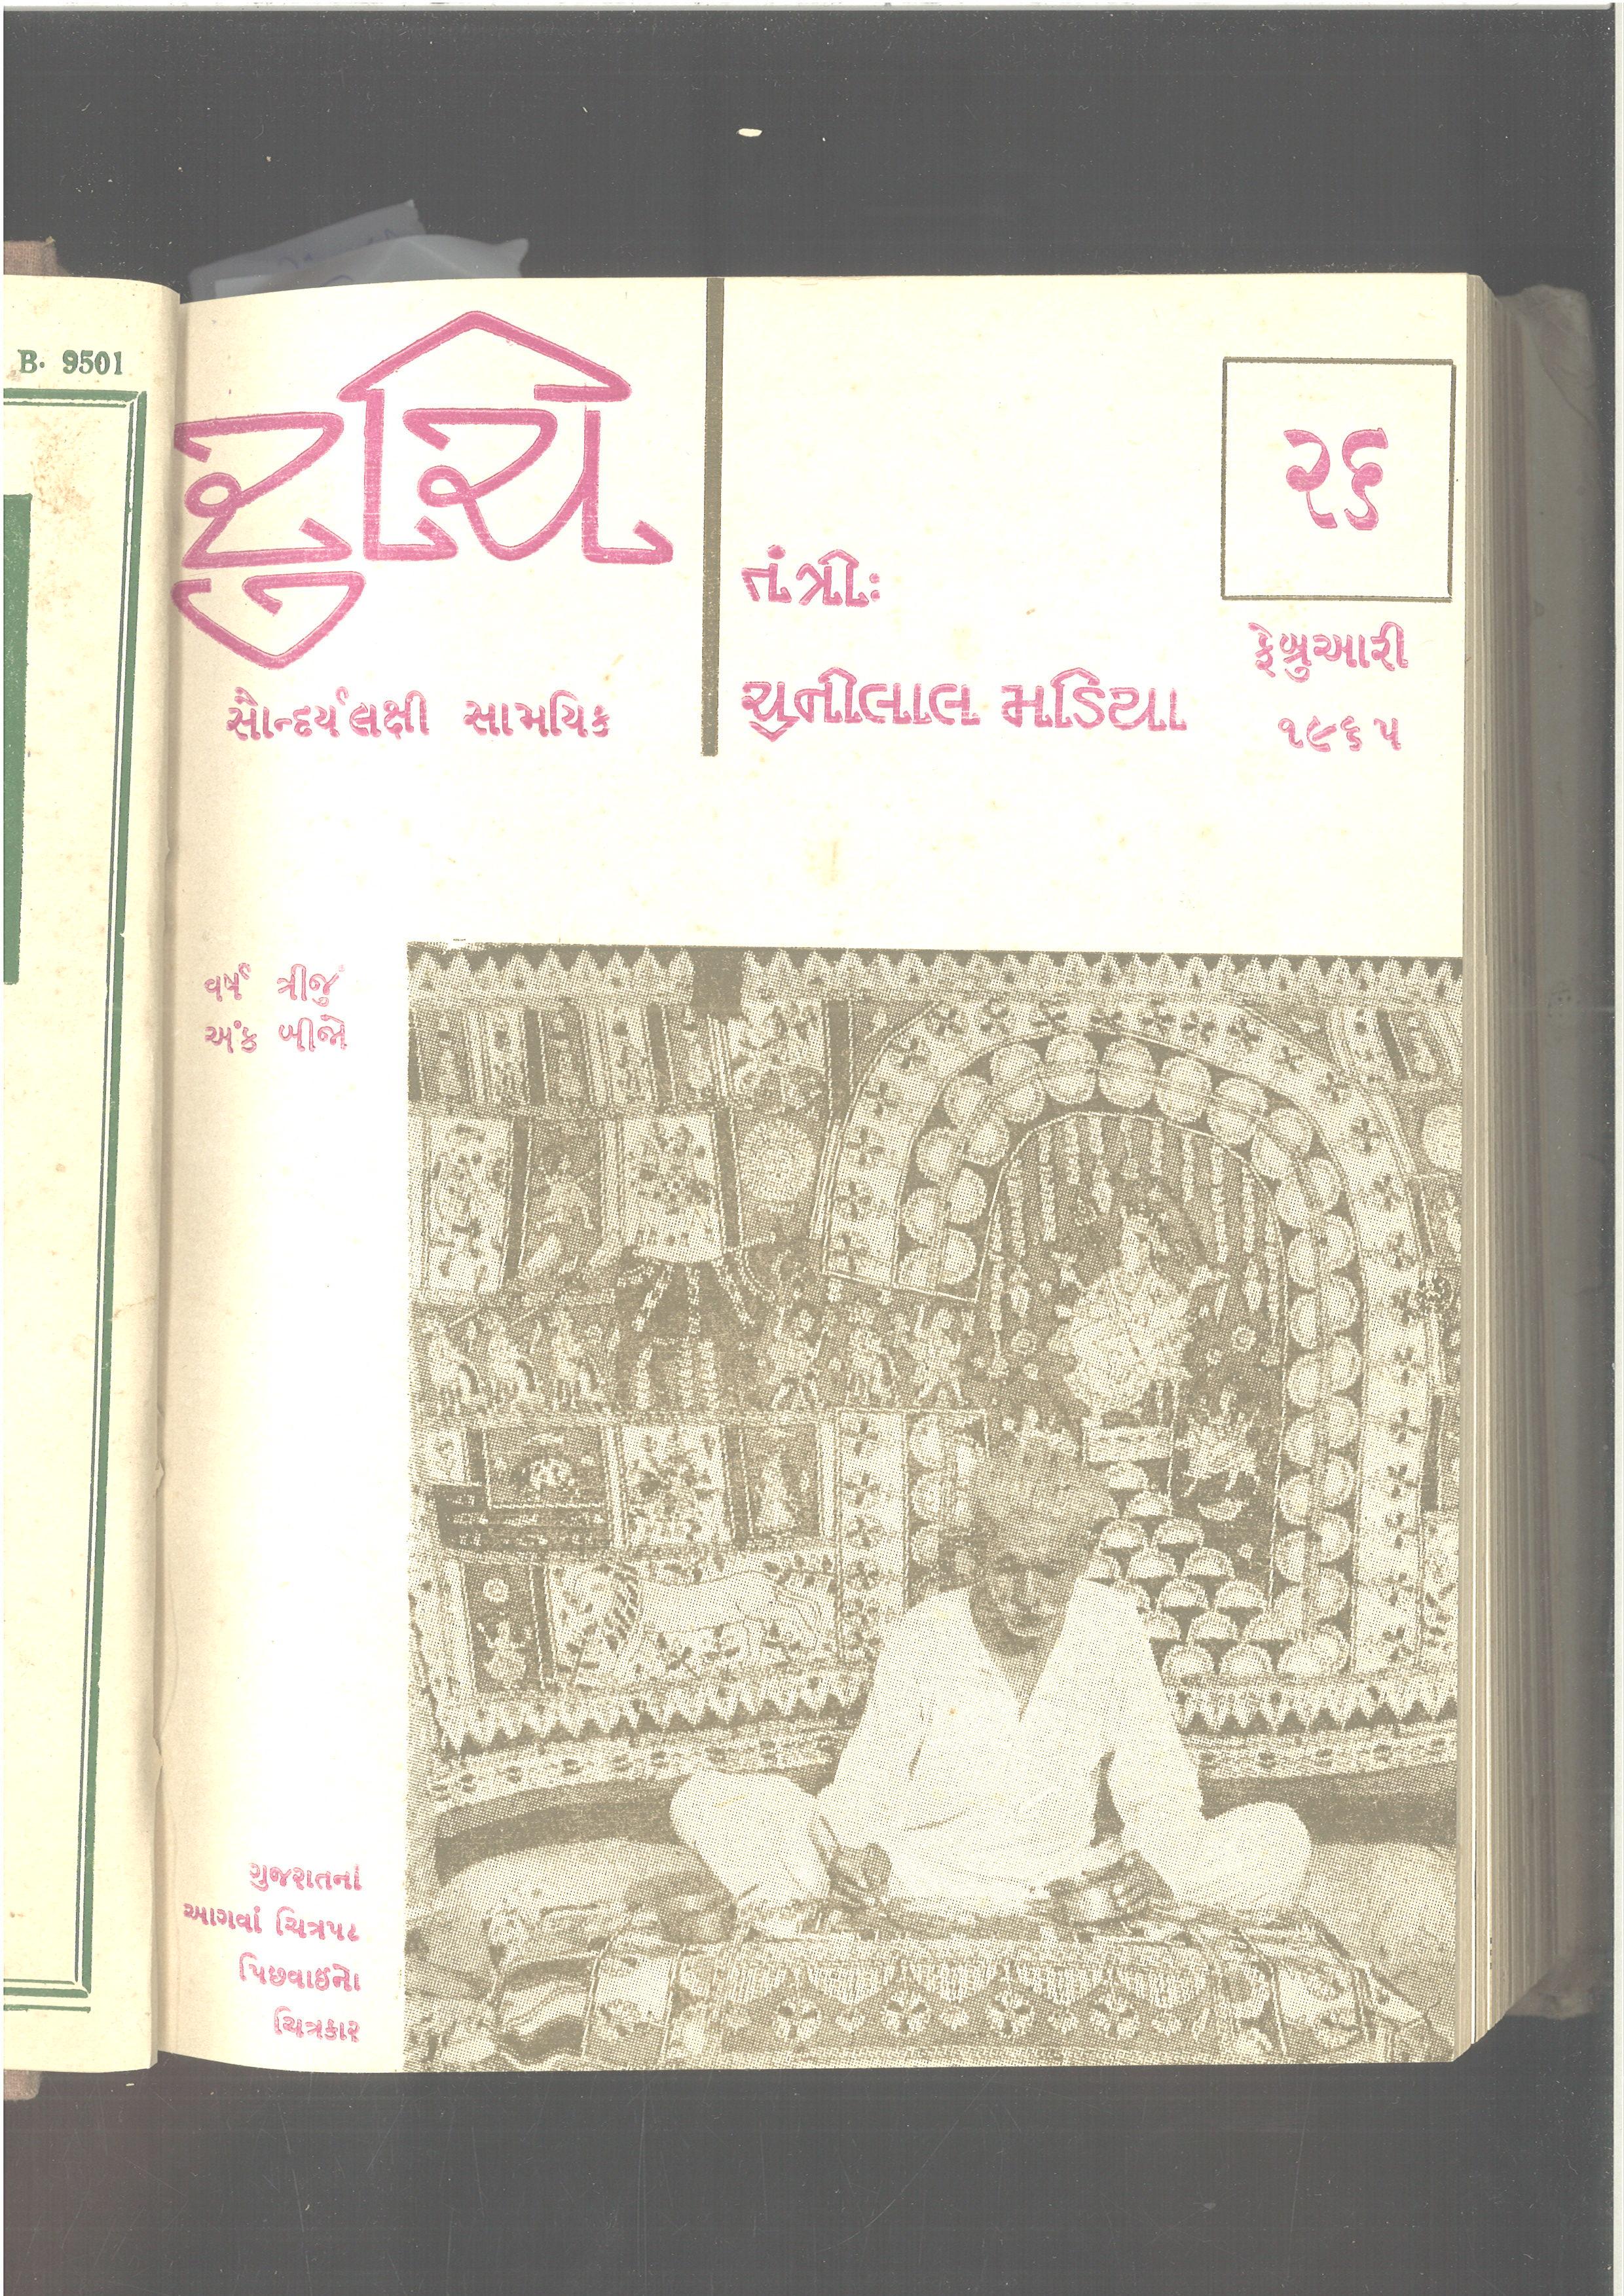 B. 9501
રુચિ
સૌન્દર્યલક્ષી સામયિક
તંત્રીઃ
ચુનીલાલ મડિયા
૨૬
ફેબ્રુઆરી
૧૯૬૫
વર્ષ ત્રીજું
અંક બીજો
ગુજરાતનાં
આગવાં ચિત્રપટ
પિછવાઈનો
ચિત્રકાર